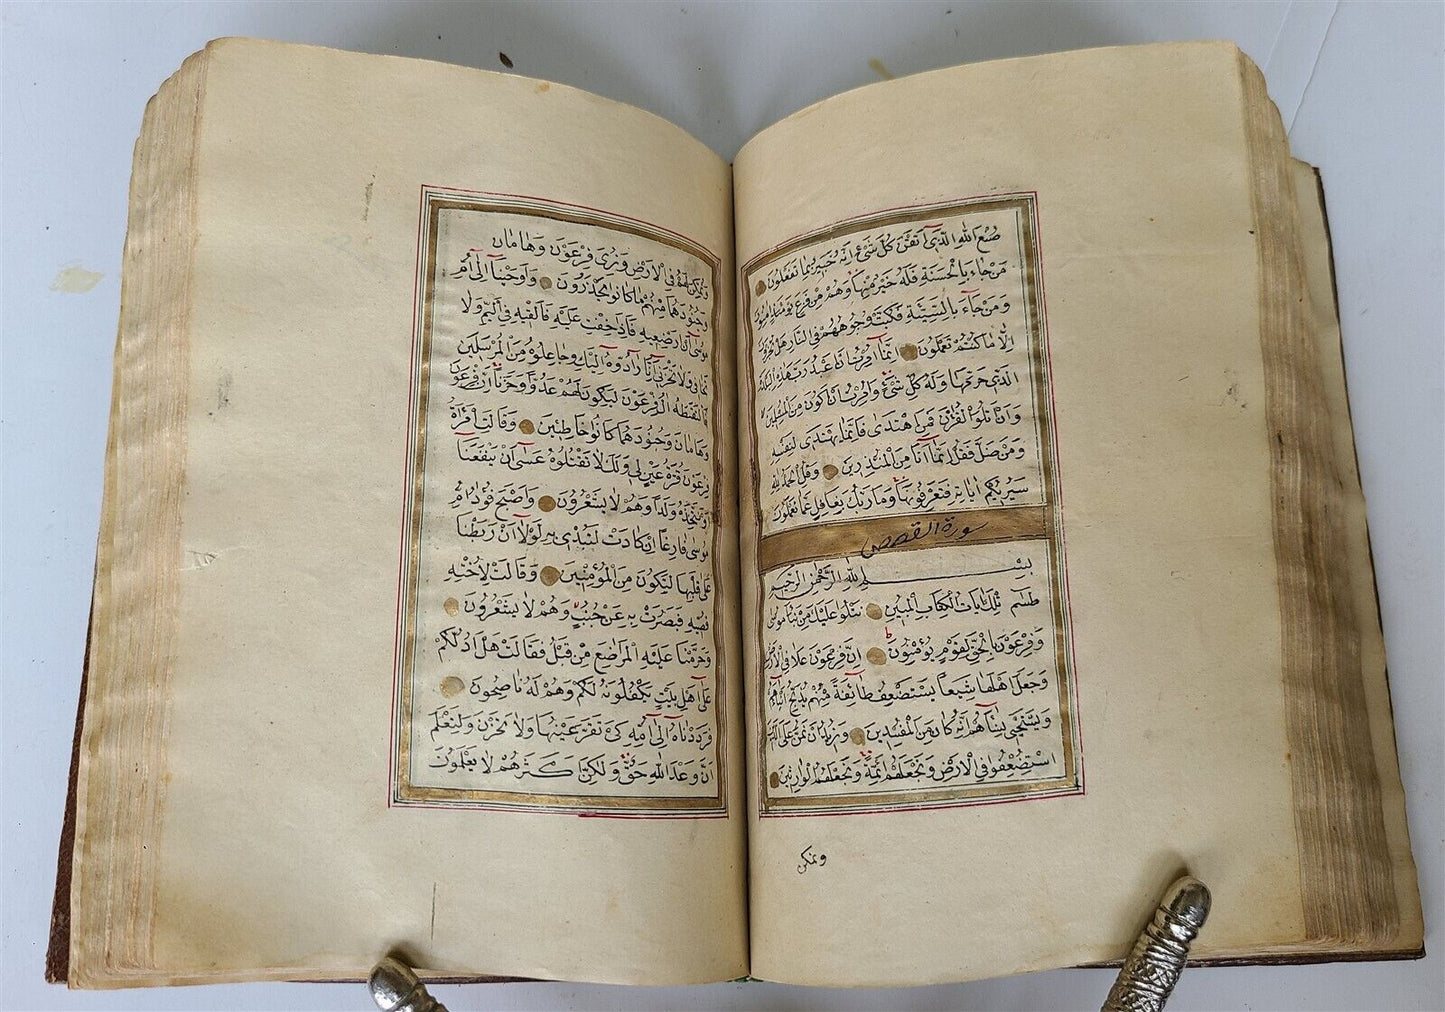 صُنْعَ اللهِ الَّذٖٓى اَتْقَنَ كُلَّ شَىْءٍ اِنَّهُ خَبٖيرٌ بِمَا تَفْعَلُونَ
مَنْ جَاءَ بِالْحَسَنَةِ فَلَهُ خَيْرٌ مِنْهَا وَهُمْ مِنْ فَزَعٍ يَوْمَئِذٍ اٰمِنُونَ
وَمَنْ جَاءَ بِالسَّيِّئَةِ فَكُبَّتْ وُجُوهُهُمْ فِى النَّارِ هَلْ تُجْزَوْنَ
اِلَّا مَا كُنْتُمْ تَعْمَلُونَ اِنَّمَا اُمِرْتُ اَنْ اَعْبُدَ رَبَّ هٰذِهِ الْبَلْدَةِ
الَّذٖى حَرَّمَهَا وَلَهُ كُلُّ شَىْءٍ وَاُمِرْتُ اَنْ اَكُونَ مِنَ الْمُسْلِمٖينَ
وَاَنْ اَتْلُوَا الْقُرْاٰنَ فَمَنِ اهْتَدٰى فَاِنَّمَا يَهْتَدٖى لِنَفْسِهِ
وَمَنْ ضَلَّ فَقُلْ اِنَّمَا اَنَا مِنَ الْمُنْذِرٖينَ وَقُلِ الْحَمْدُ لِلّٰهِ
سَيُرٖيكُمْ اٰيَاتِهِ فَتَعْرِفُونَهَا وَمَا رَبُّكَ بِغَافِلٍ عَمَّا تَعْمَلُونَ
سورة القصص
بِسْمِ اللهِ الرَّحْمٰنِ الرَّحٖيمِ
طٰسٓمٓ تِلْكَ اٰيَاتُ الْكِتَابِ الْمُبٖينِ نَتْلُوا عَلَيْكَ مِنْ نَبَأِ مُوسٰى
وَفِرْعَوْنَ بِالْحَقِّ لِقَوْمٍ يُؤْمِنُونَ اِنَّ فِرْعَوْنَ عَلَا فِى الْاَرْضِ
وَجَعَلَ اَهْلَهَا شِيَعًا يَسْتَضْعِفُ طَائِفَةً مِنْهُمْ يُذَبِّحُ اَبْنَاءَهُمْ
وَيَسْتَحْيٖى نِسَاءَهُمْ اِنَّهُ كَانَ مِنَ الْمُفْسِدٖينَ وَنُرٖيدُ اَنْ نَمُنَّ عَلَى الَّذٖينَ
اسْتُضْعِفُوا فِى الْاَرْضِ وَنَجْعَلَهُمْ اَئِمَّةً وَنَجْعَلَهُمُ الْوَارِثٖينَ
ونمكن
وَنُمَكِّنَ لَهُمْ فِى الْاَرْضِ وَنُرِىَ فِرْعَوْنَ وَهَامَانَ
وَجُنُودَهُمَا مِنْهُمْ مَا كَانُوا يَحْذَرُونَ وَاَوْحَيْنَا اِلٰى اُمِّ
مُوسٰى اَنْ اَرْضِعٖيهِ فَاِذَا خِفْتِ عَلَيْهِ فَاَلْقٖيهِ فِى الْيَمِّ وَلَا
تَخَافٖى وَلَا تَحْزَنٖى اِنَّا رَادُّوهُ اِلَيْكِ وَجَاعِلُوهُ مِنَ الْمُرْسَلٖينَ
فَالْتَقَطَهُ اٰلُ فِرْعَوْنَ لِيَكُونَ لَهُمْ عَدُوًّا وَحَزَنًا اِنَّ فِرْعَوْنَ
وَهَامَانَ وَجُنُودَهُمَا كَانُوا خَاطِـٖٔينَ وَقَالَتِ امْرَاَةُ
فِرْعَوْنَ قُرَّةُ عَيْنٍ لٖى وَلَكَ لَا تَقْتُلُوهُ عَسٰى اَنْ يَنْفَعَنَا
اَوْ نَتَّخِذَهُ وَلَدًا وَهُمْ لَا يَشْعُرُونَ وَاَصْبَحَ فُؤٰادُ اُمِّ
مُوسٰى فَارِغًا اِنْ كَادَتْ لَتُبْدٖى بِهِ لَوْلَا اَنْ رَبَطْنَا
عَلٰى قَلْبِهَا لِتَكُونَ مِنَ الْمُؤْمِنٖينَ وَقَالَتْ لِاُخْتِهِ
قُصّٖيهِ فَبَصُرَتْ بِهِ عَنْ جُنُبٍ وَهُمْ لَا يَشْعُرُونَ
وَحَرَّمْنَا عَلَيْهِ الْمَرَاضِعَ مِنْ قَبْلُ فَقَالَتْ هَلْ اَدُلُّكُمْ
عَلٰى اَهْلِ بَيْتٍ يَكْفُلُونَهُ لَكُمْ وَهُمْ لَهُ نَاصِحُونَ
فَرَدَدْنَاهُ اِلٰى اُمِّهِ كَىْ تَقَرَّ عَيْنُهَا وَلَا تَحْزَنَ وَلِتَعْلَمَ
اَنَّ وَعْدَ اللهِ حَقٌّ وَلٰكِنَّ اَكْثَرَهُمْ لَا يَعْلَمُونَ